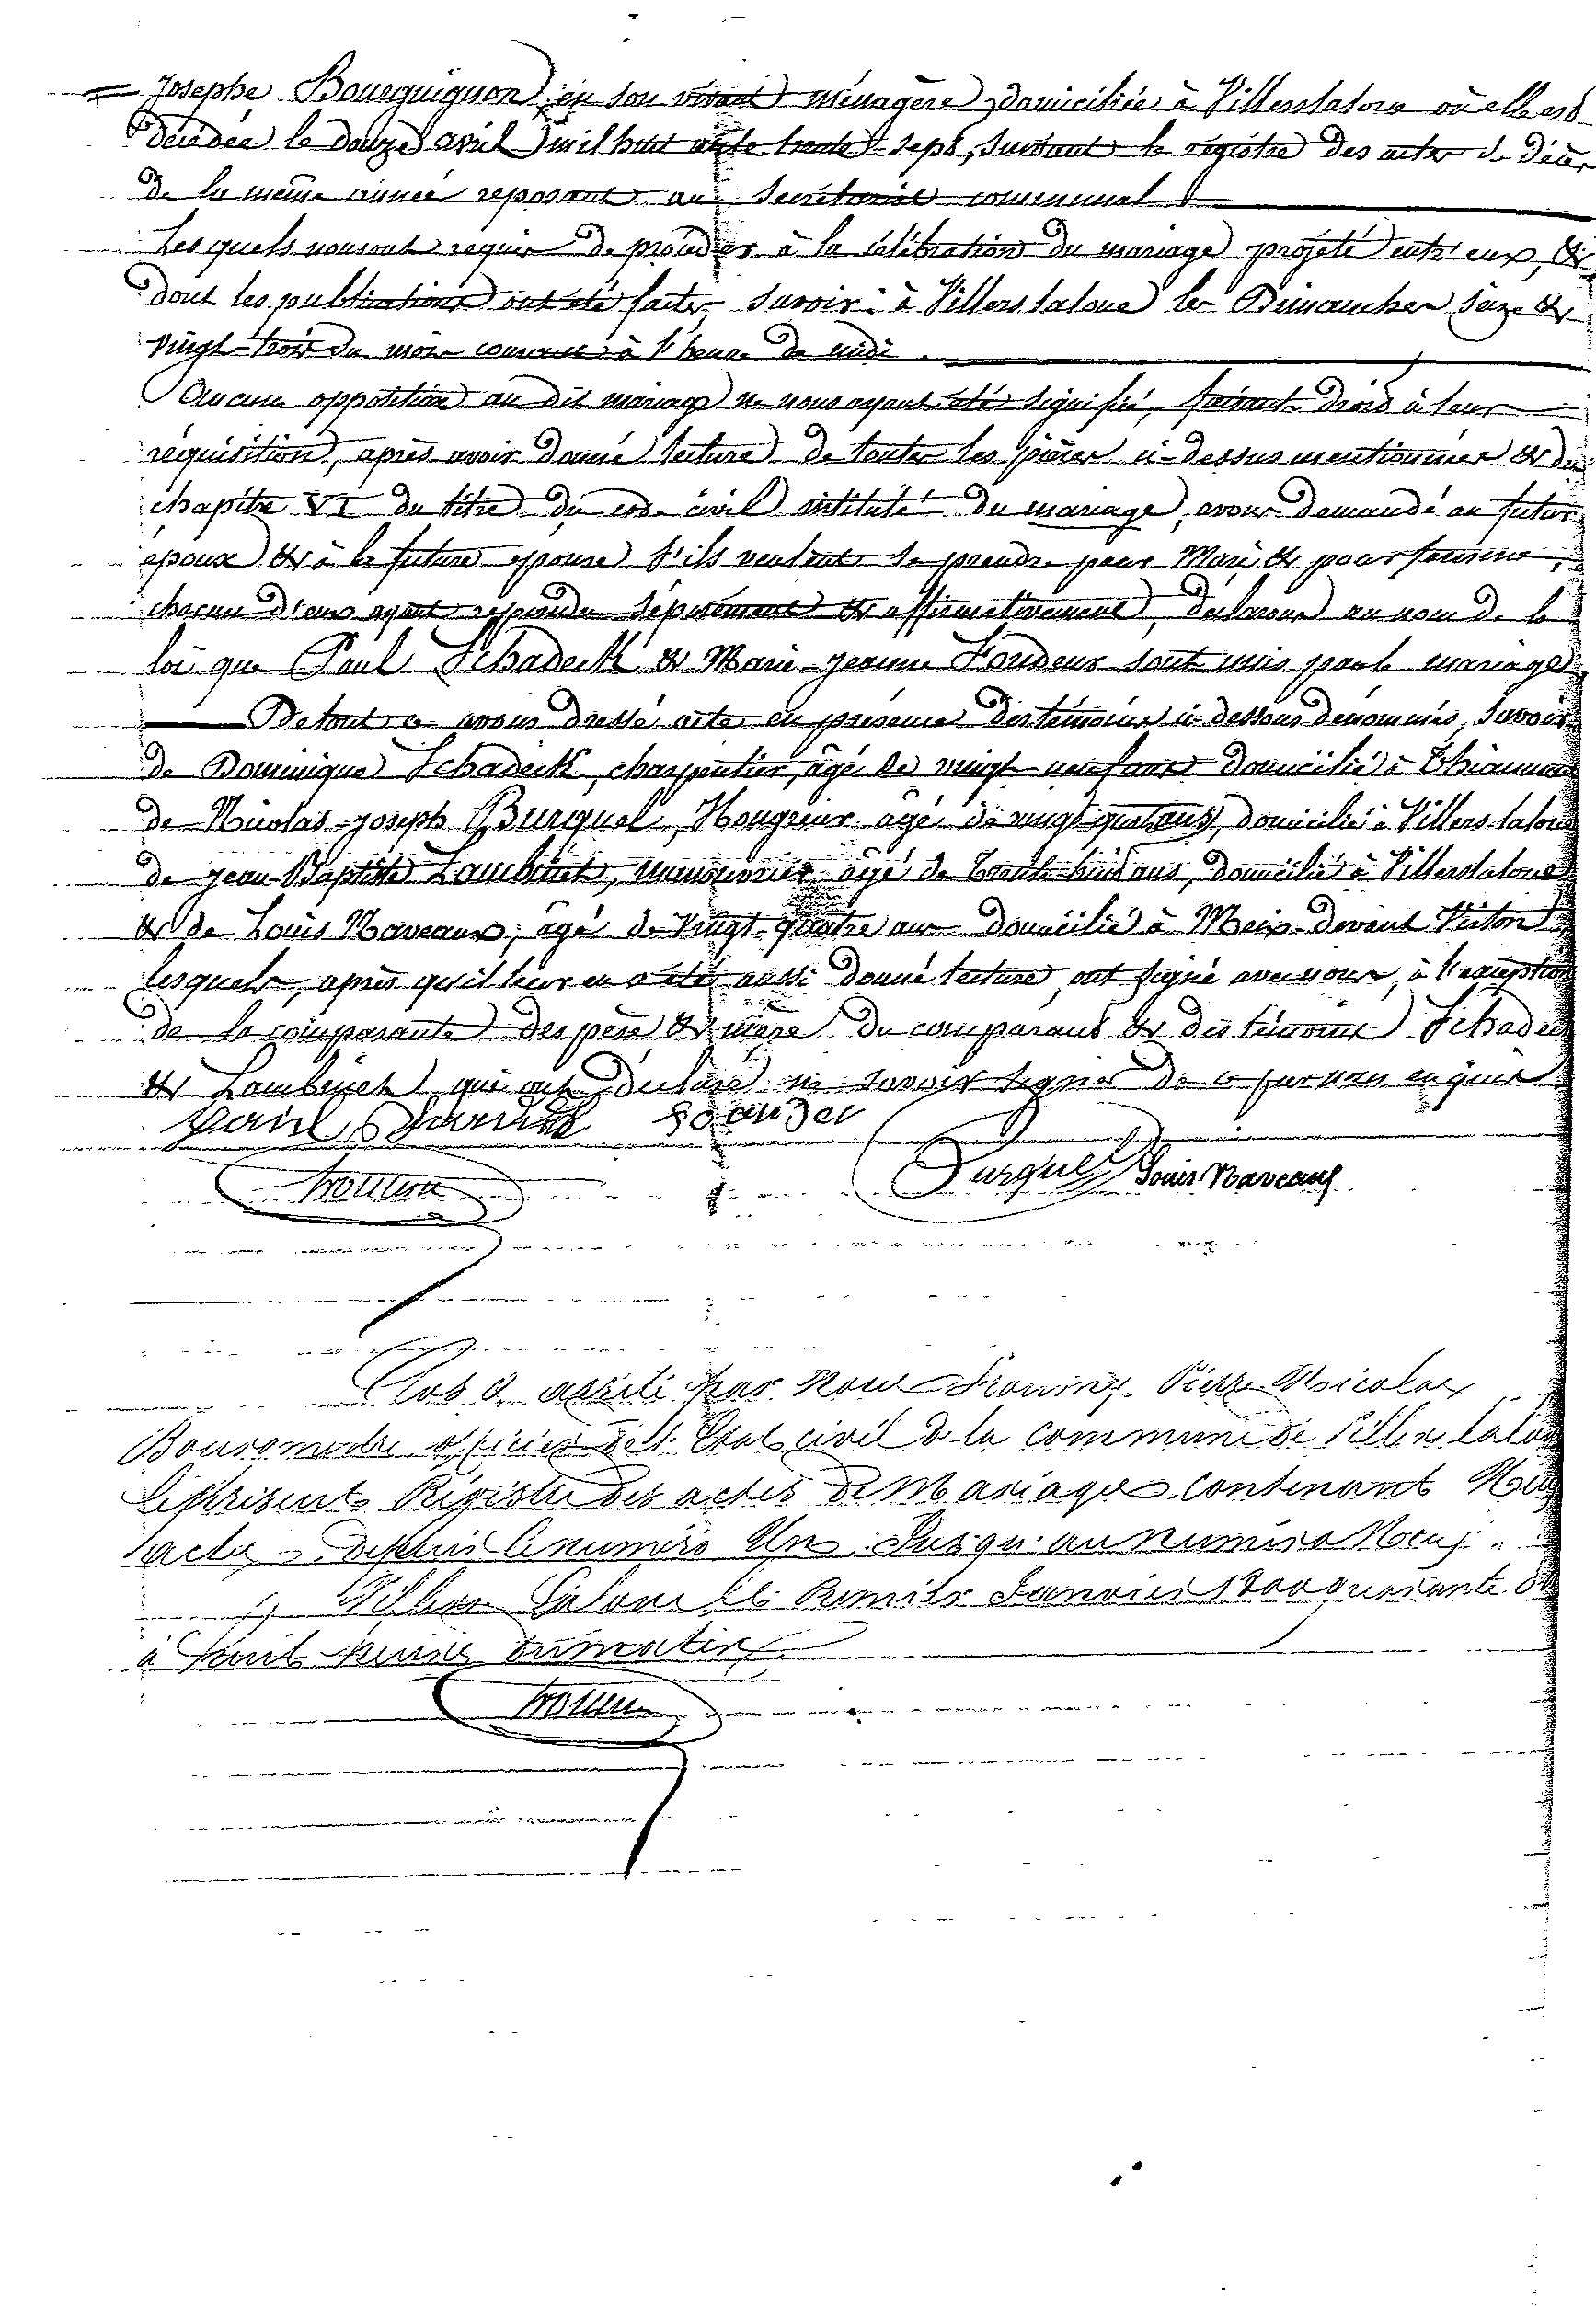 Josephe Bourguignon, en son vivant ménagère, domiciliée à Villerslaloue où elle est
décédée le douze avril mil huit cente trente sept, suivant le régistre des actes de décès
de la même année reposant au secrétariat communal
Lesquels nous ont requis de procéder à la célébration du mariage projeté entr'eux, &
dont les publications ont été faites, savoir: à Villerslaloue les Dimanches seize &
vingt-trois du mois courant à l'heure de midi.
Aucune opposition au dit mariage ne nous ayant été signifiée, faisant droit à leur
réquisition, après avoir donné lecture de toutes les pièces ci-dessus mentionnées & du
chapitre VI du titre du code civil intitulé du mariage, avons demandé au futur
époux & à la future épouse s'ils veulent se prendre pour Mari & pour femme,
chacun d'eux ayant répondu séparément & affirmativement, déclarons au nom de la
loi que Paul Schadeck & Marie-jeanne Fondeur sont unis par le mariage
De tout ce avons dressé acte en présence des témoins ci-dessous dénommés, savoir
de Dominique Schadeck, charpentier, âgé de vingt neuf ans domicilié à Thiaumont
de Nicolas-joseph Burquel, Hongreur âgé de vingt quatre ans, domicilié à Villers laloue
de jean-Baptiste Lambinet, manouvrier âgé de trente huit ans, domicilié à Villerslaloue
& de Louis Naveaux, âgé de vingt-quatre ans domicilié à Meix-devant Virton
lesquels, après qu'il leur en a été aussi donné lecture, ont signé avec nous, à l'exception
de la comparante des père & mère du comparant & des témoins Schadeck
& Lambinet qui ont déclaré ne savoir signer de ce par nous enquis
paul
Burquel Louis Naveaux
Clos & arrêté par Nous Pierre Nicolas
Bourgmestre officier de l'Etat civil de la commune de Villers Laloue
le présent Régistre des actes de Mariages contenant Neuf
actes depuis le numéro Un Jusqu'au numéro Neuf.
Villers Laloue le Premier Janvier 1800 quarante
à huit heures du matin